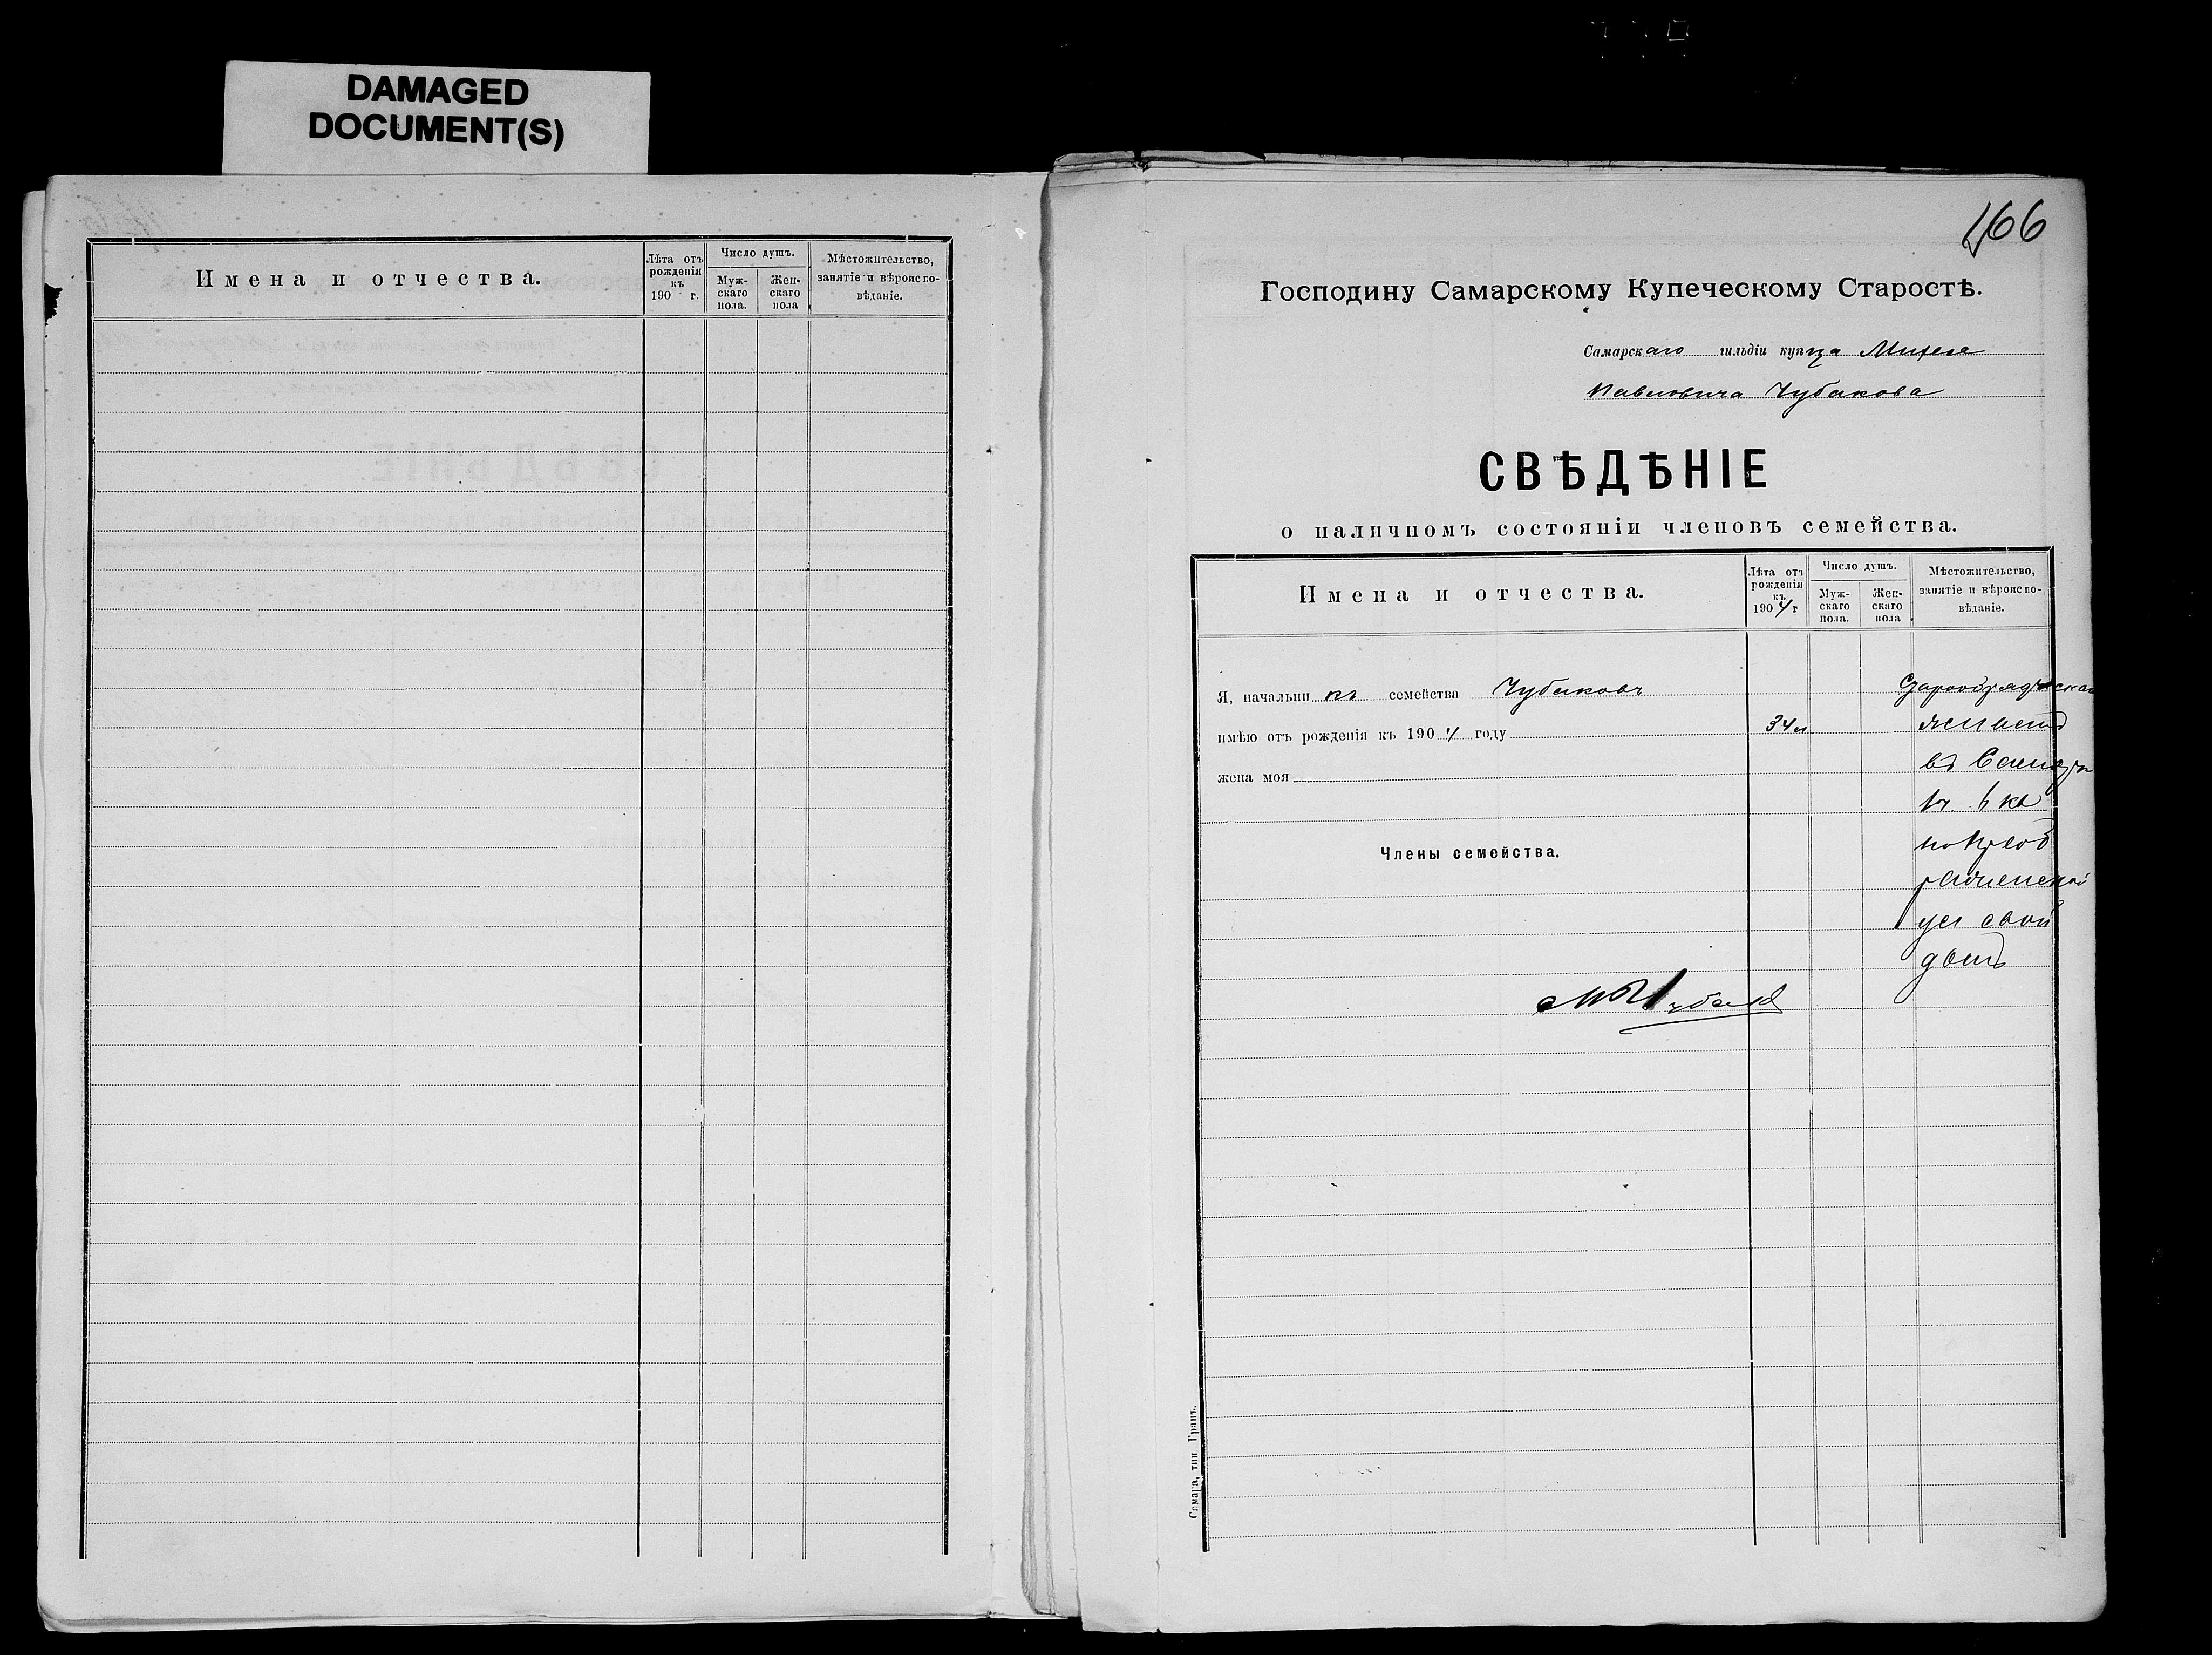 DAMAGED
DOCUMENT(S)
Имена и отчества.
Лѣта отъ рожденія къ 190 г.
Число душъ.
Муж-скаго пола.
Жен-скаго пола
Мѣстожительство, занятіе и вѣроиспо-вѣданіе.
166
Господину Самарскому Купеческому Старостѣ.
Самарскаго гильдіи купца
Павловича Чубакова
СВѢДѢНІЕ
о наличномъ состояніи членовъ семейства.
Имена и отчества.
Лѣта отъ рожденія къ 1904 г
Число душъ.
Муж-скаго пола.
Жен-скаго пола
Мѣстожительство, занятіе и вѣроиспо-вѣданіе.
Я, начальникъ семейства Чубаковъ
имѣю отъ рожденія къ 1904 году 34 л
жена моя
въ Самарѣ
Члены семейства.
свой
домъ
Самара, тип Гранъ.